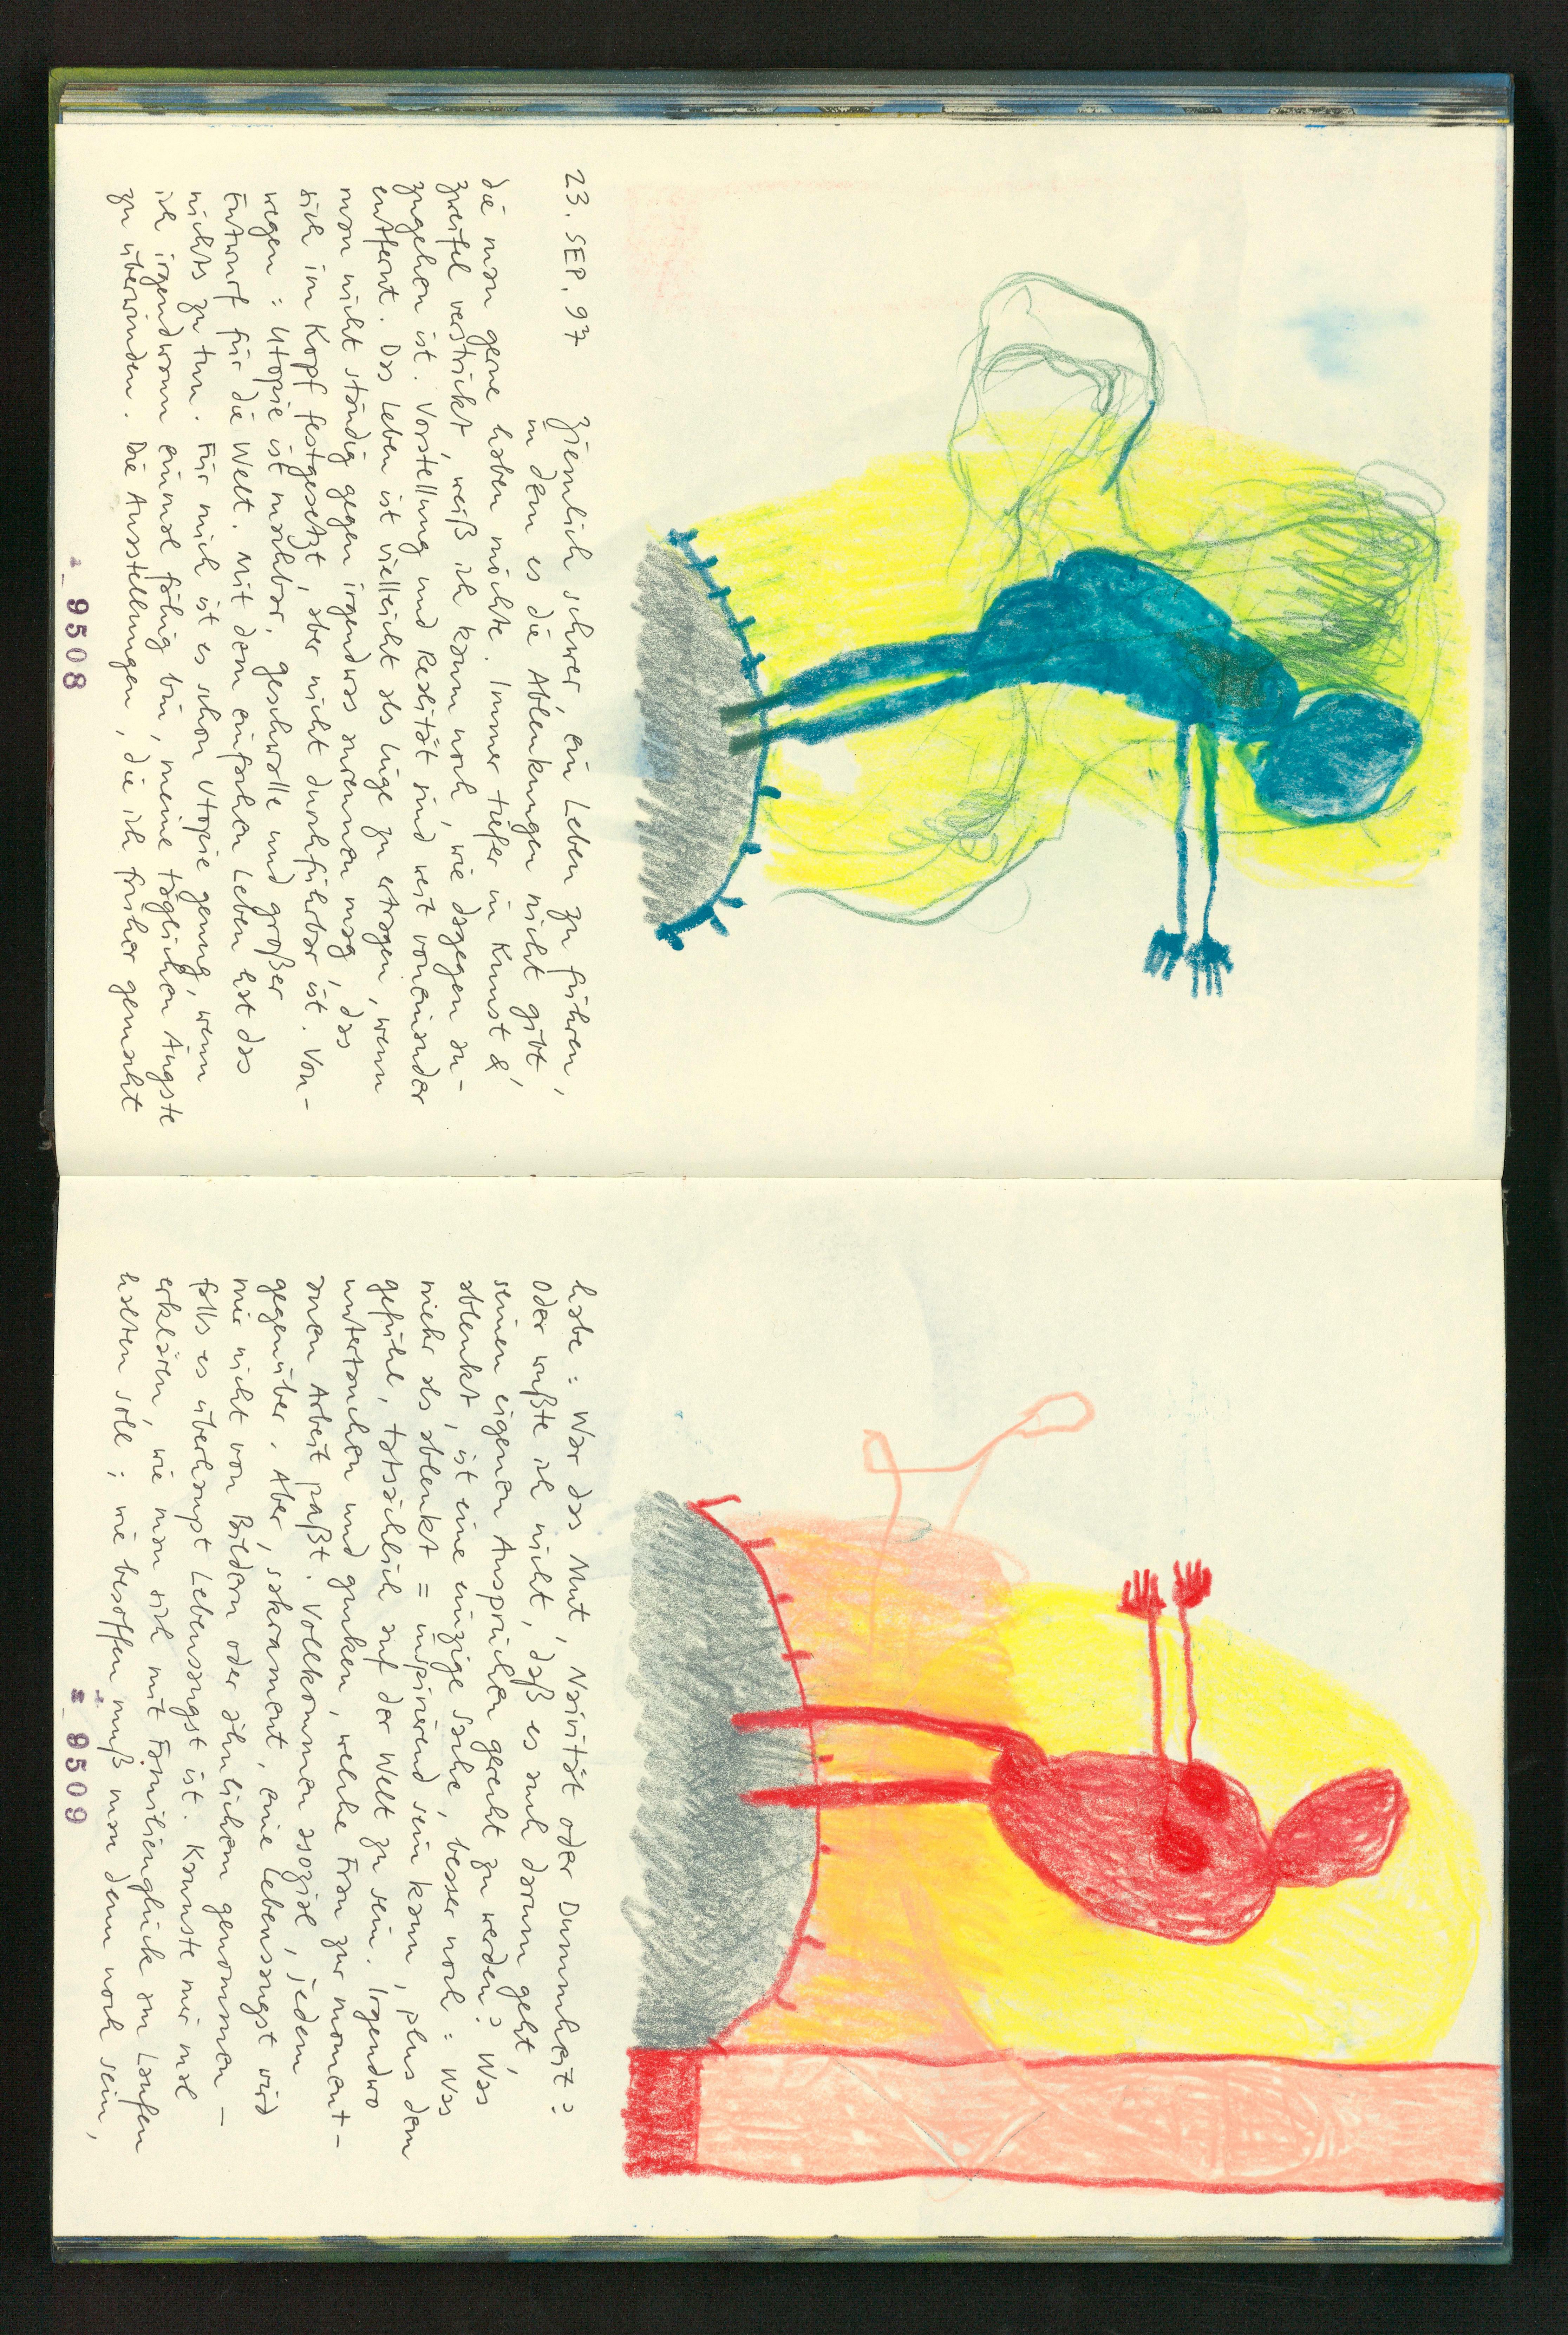 23. SEP. 97
Ziemlich schwer, ein Leben zu führen,
in dem es die Ablenkungen nicht gibt,
die man gerne haben möchte. Immer tiefer in Kunst &
zweifel verstrickt, weiß ich kaum noch, wie dagegen an-
zugehen ist. Vorstellung und Realität sind weit voneinander
entfernt. Das Leben ist vielleicht als Lüge zu ertragen, wenn
man nicht ständig gegen irgendwas anrennen mag, das
sich im Kopf festgesetzt, aber nicht durchführbar ist. Von-
wegen: Utopie ist machbar, geschwolle und großer
Entwurf für die Welt. Mit dem einfachen Leben hat das
nichts zu tun. Für mich ist es schon Utopie genug, wenn
ich irgendwann einmal fähig bin, meine täglichen Ängste
zu überwinden. Die Ausstellungen, die ich früher gemacht
9508
habe: War das Mut, Naivität oder Dummheit?
Oder wußte ich nicht, daß es auch darum geht,
seinen eigenen Ansprüchen gerecht zu werden? Was
ablenkt, ist eine einzige Sache, besser noch: Was
mehr als ablenkt = inspirierend sein kann, plus dem
gefühl, tatsächlich auf der Welt zu sein. Irgendwo
untertauchen und gucken, welche Frau zur moment-
anen Arbeit paßt. Vollkommen asozial, jedem
gegenüber. Aber, sakrament, eine Lebensangst wird
mir nicht von Bildern oder ähnlichem genommen –
falls es überhaupt Lebensangst ist. Kannste mir mal
erklären, wie man sich mit Familienglück am Laufen
halten soll; wie besoffen muß man denn noch sein,
9509